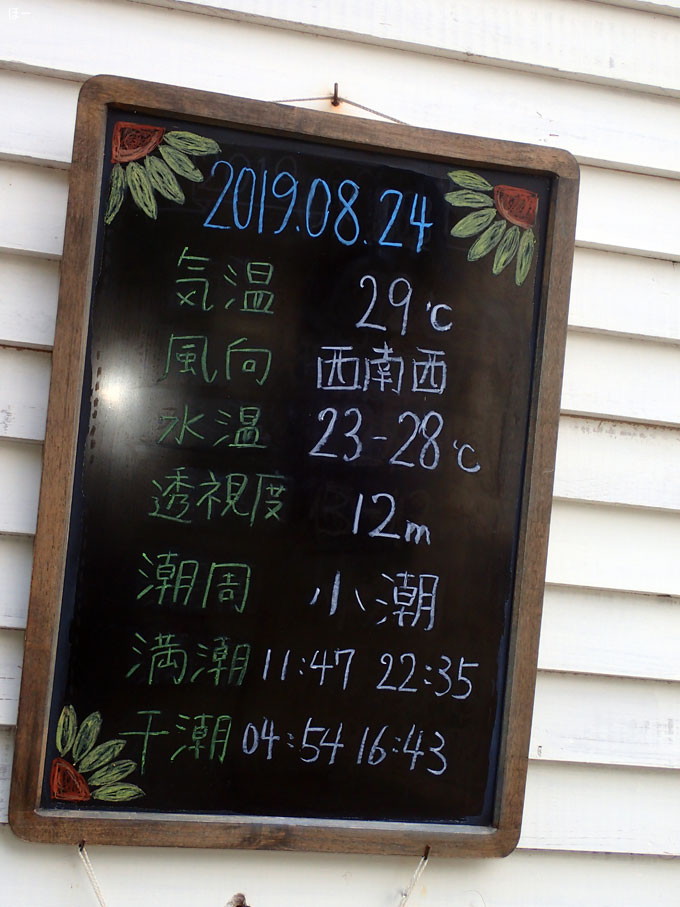 ぼー
2019.08.24
気温 29℃
風向 西南西
水温 23-28℃
透視度 12m
潮周 小潮
満潮 11:47 22:35
干潮 04:54 16:43